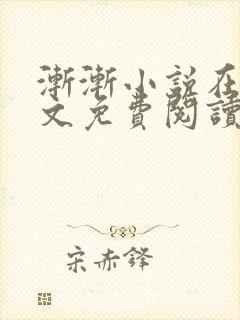 漸漸小説在
文免費閱讀
宋赤鋒